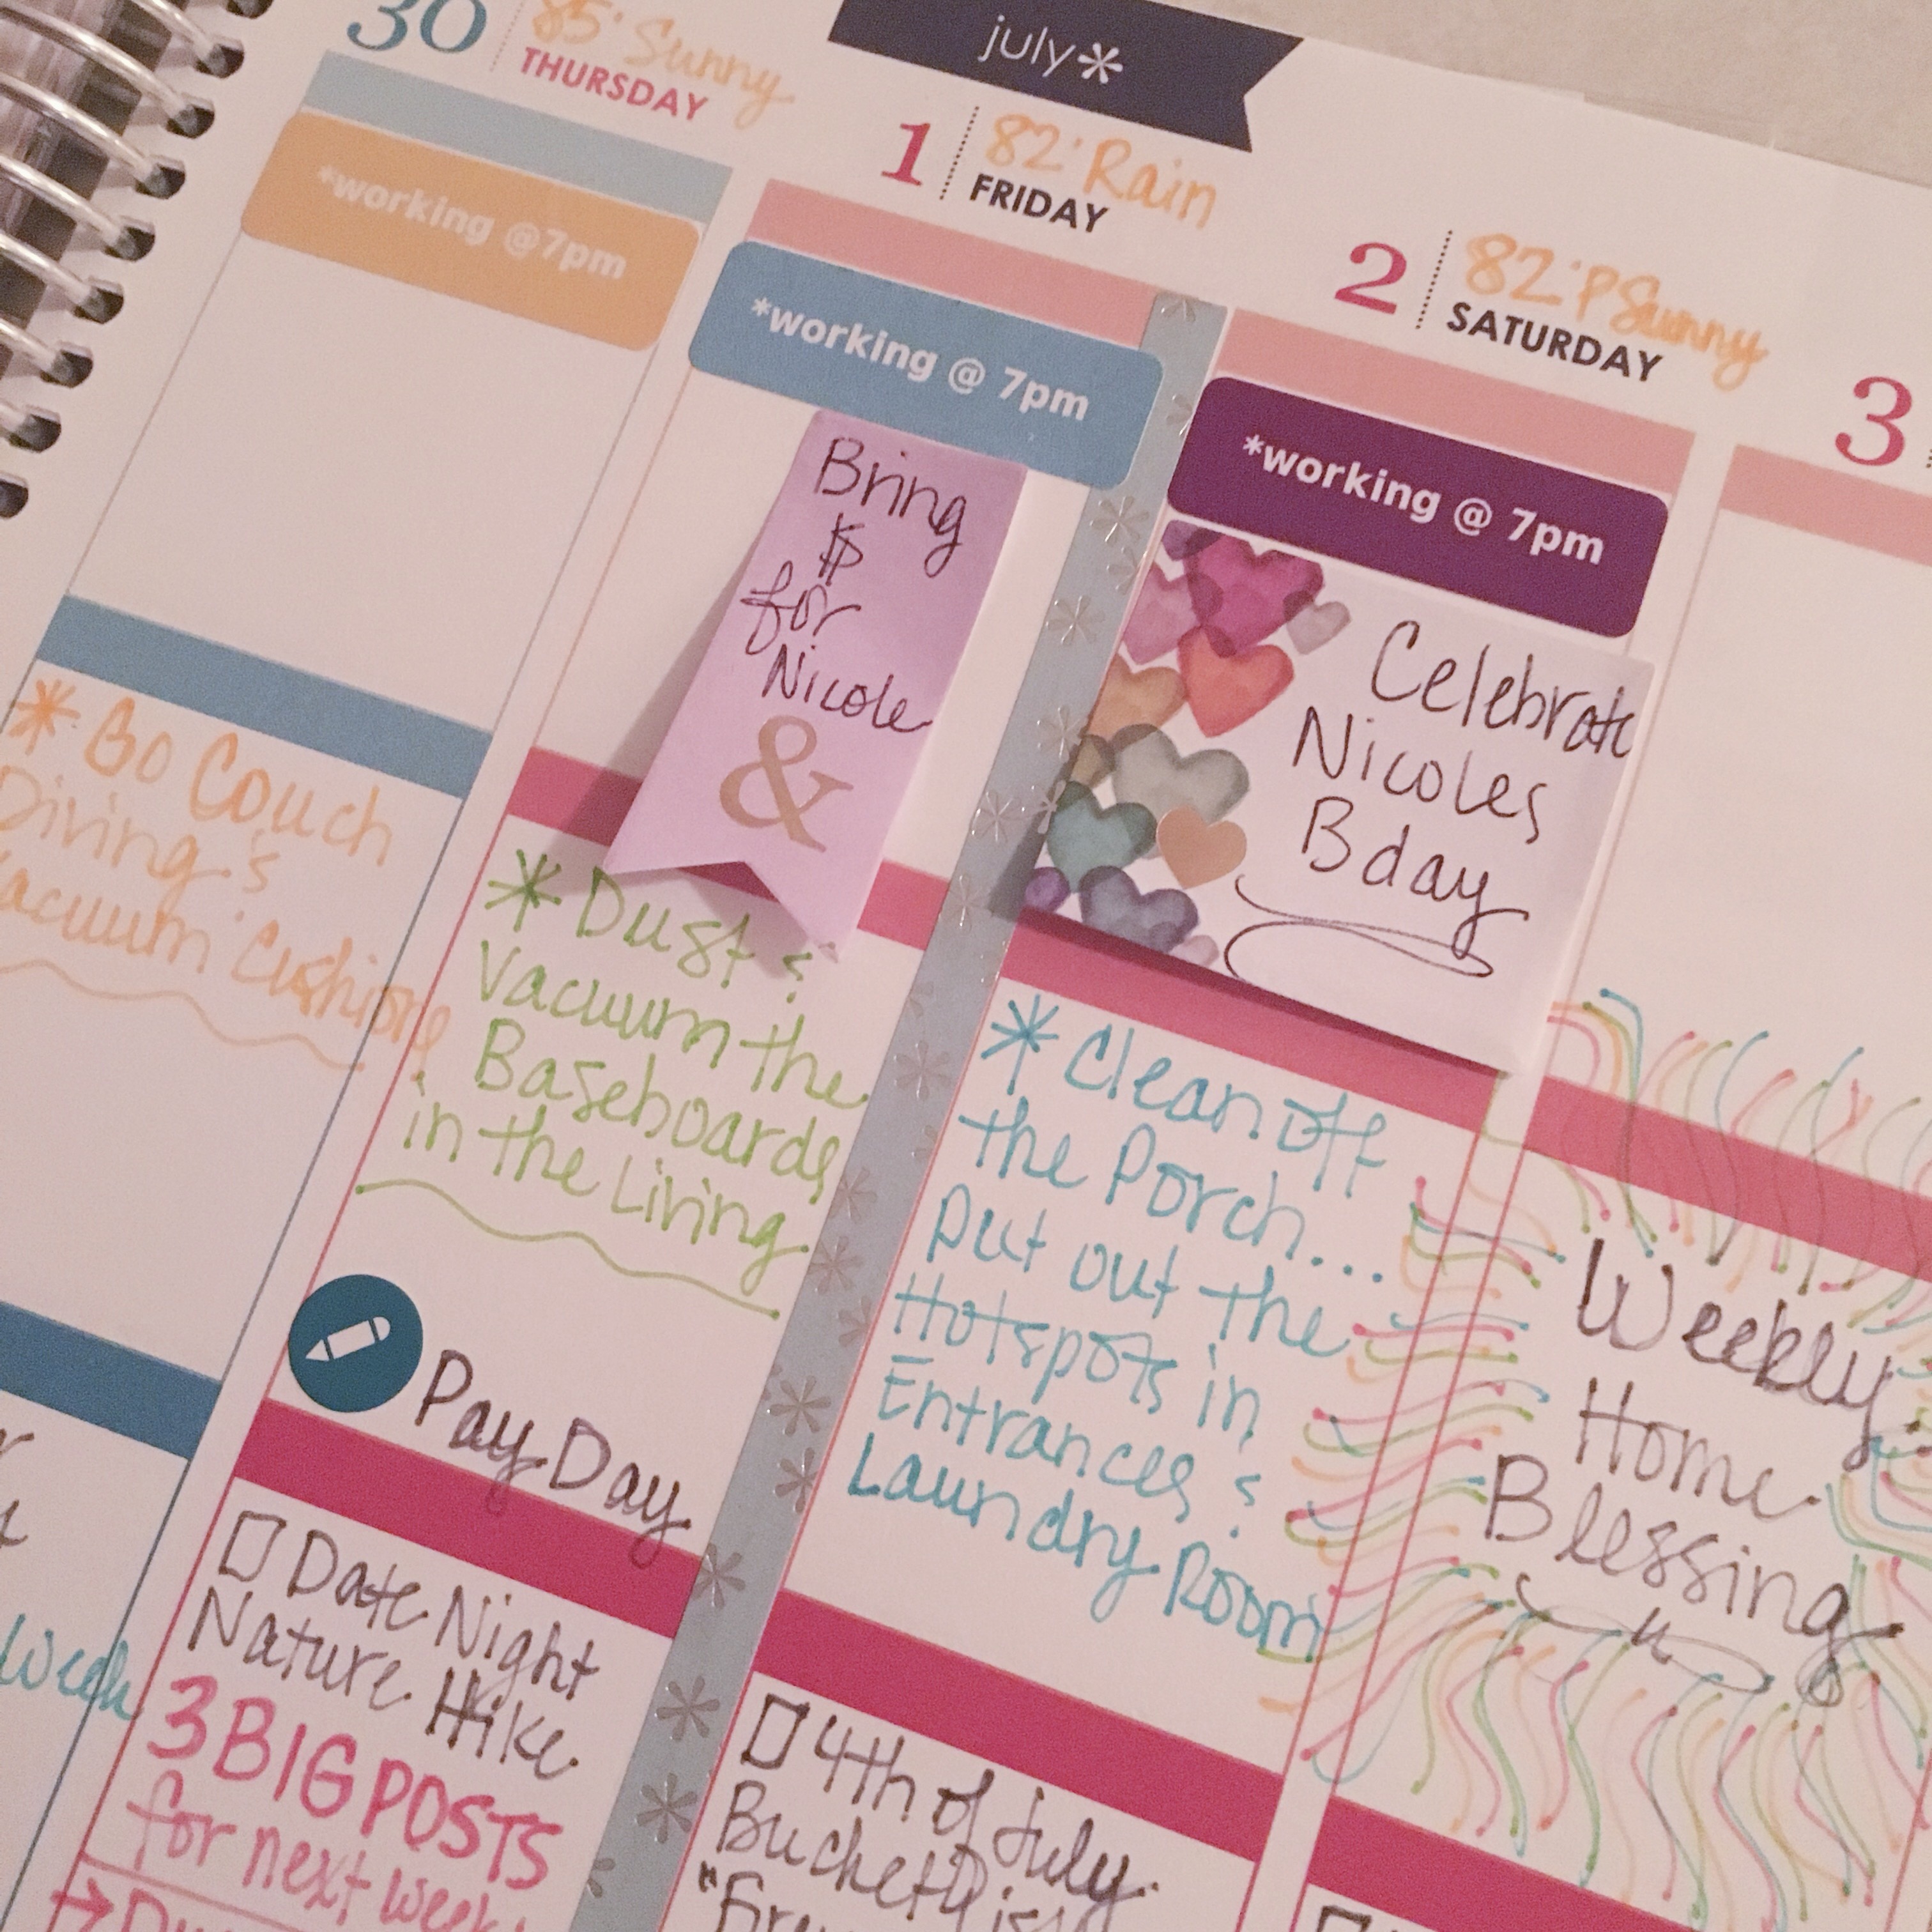 july*
30
85° Sunny
THURSDAY
*working @7pm
* Go Couch
Diving &
Vacuum Cushions
Week
1
82° Rain
FRIDAY
*working @ 7pm
Bring
$
for
Nicole
&
* Dust &
Vacuum the
Baseboards
in the Living
Pay Day
Date Night
Nature Hike
3 BIG POSTS
for next week
2
82° P Sunny
SATURDAY
*working @ 7pm
Celebrate
Nicoles
Bday
* Clean off
the Porch...
put out the
Hotspots in
Entrances &
Laundry Room
4th of July
Bucketlist
3
Weekly
Home
Blessing